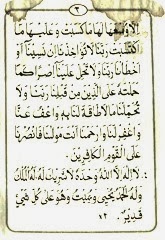 ٣
اِلَّا وُسْعَهَا لَهَا مَا كَسَبَتْ وَعَلَيْهَا مَا
اكْتَسَبَتْ رَبَّنَا لَا تُؤَاخِذْنَا اِنْ نَسِيْنَا اَوْ
اَخْطَأْنَا رَبَّنَا وَلَا تَحْمِلْ عَلَيْنَا اِصْرًا كَمَا
حَمَلْتَهُ عَلَى الَّذِيْنَ مِنْ قَبْلِنَا رَبَّنَا وَلَا
تُحَمِّلْنَا مَا لَا طَاقَةَ لَنَا بِهِ وَاعْفُ عَنَّا
وَاغْفِرْ لَنَا وَارْحَمْنَا اَنْتَ مَوْلٰنَا فَانْصُرْنَا
عَلَى الْقَوْمِ الْكَافِرِيْنَ
٤. لَا اِلٰهَ اِلَّا اللهُ وَحْدَهُ لَا شَرِيْكَ لَهُ لَهُ الْمُلْكُ
وَلَهُ الْحَمْدُ يُحْيِيْ وَيُمِيْتُ وَهُوَ عَلَى كُلِّ شَيْءٍ
قَدِيْرٌ